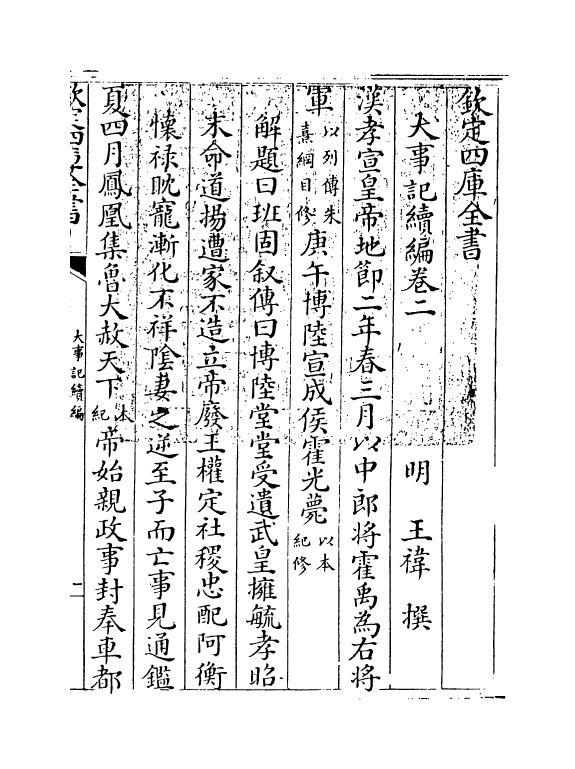 欽定四庫全書
大事記續編卷二
明 王禕 撰
漢孝宣皇帝地節二年春三月以中郎將霍禹為右將
軍以列傳朱熹綱目修庚午博陸宣成侯霍光薨以本紀修
解題曰班固叙傳曰博陸堂堂受遺武皇擁毓孝昭
末命道揚遭家不造立帝廢王權定社稷忠配阿衡
懷禄耽寵漸化不祥陰妻之逆至子而亡事見通鑑
夏四月鳳凰集魯大赦天下本紀帝始親政事封奉車都
欽定四庫全書
大事記續編
二